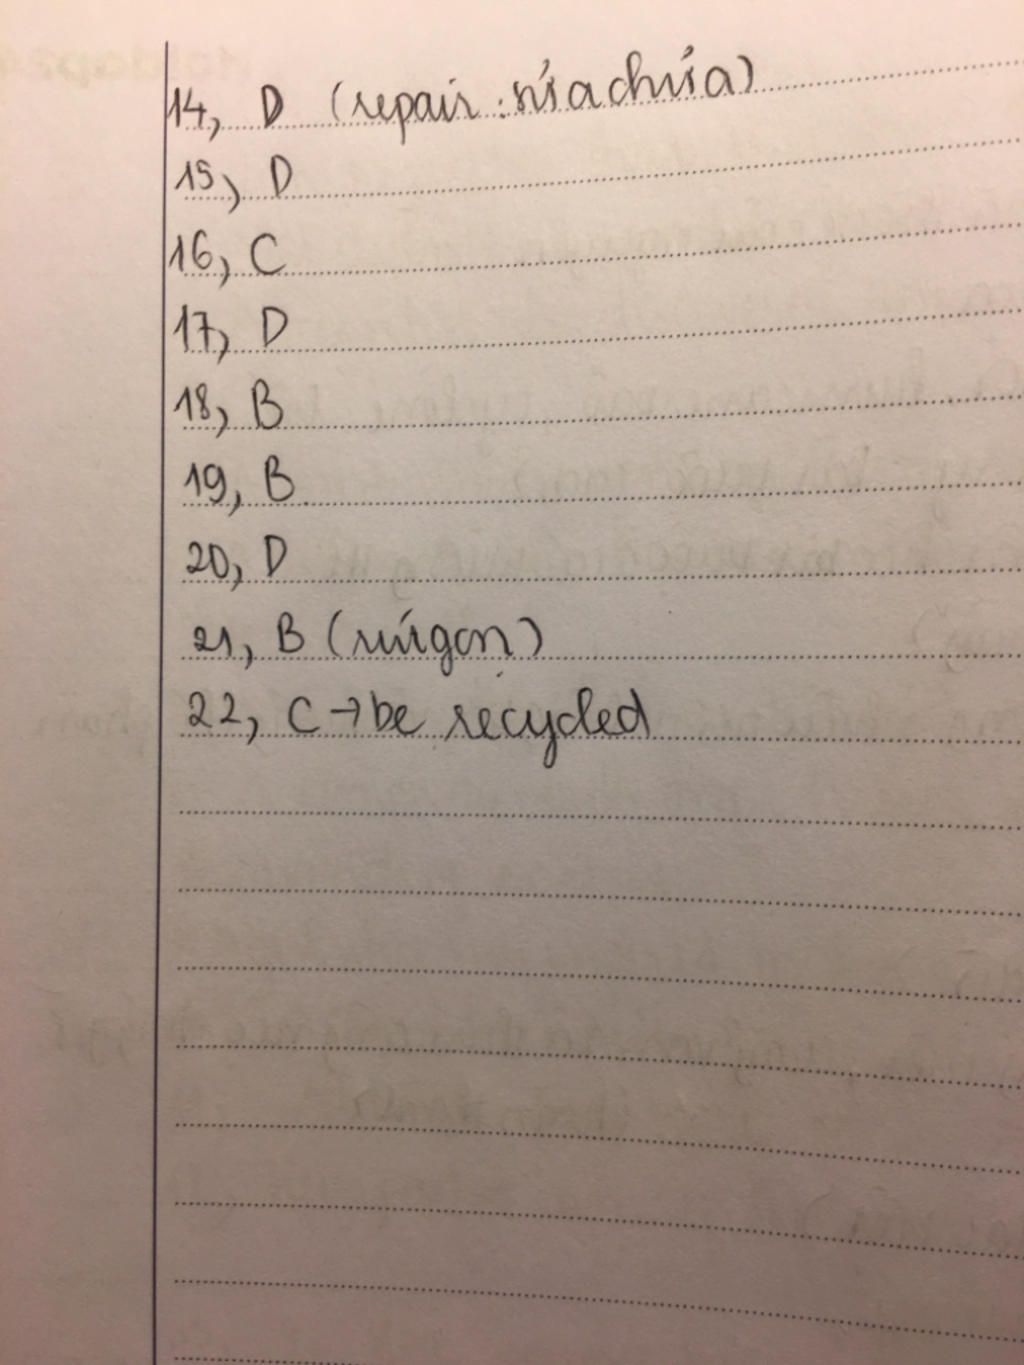 14, D (repair: sửa chữa)
15, D
16, C
17, D
18, B
19, B
20, D
21, B (rút gọn)
22, C → be recycled